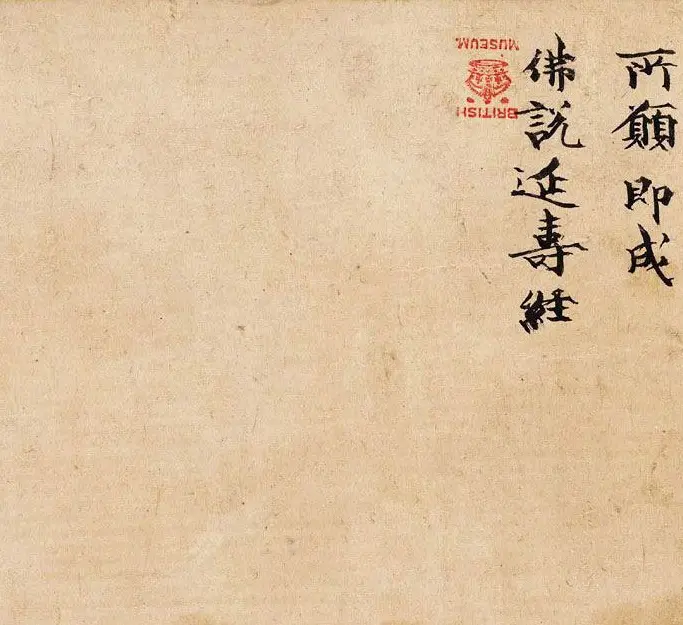 所願即成
佛說延壽經
BRITISH
MUSEUM.